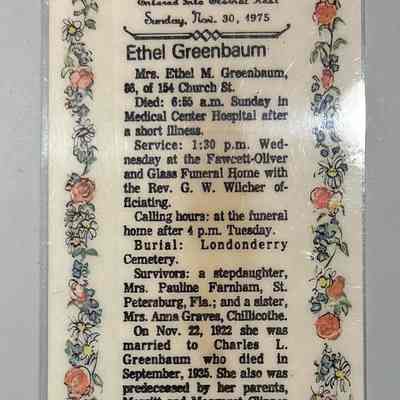 Entered Into Eternal Rest
Sunday, Nov. 30, 1975
Ethel Greenbaum
Mrs. Ethel M. Greenbaum,
86, of 154 Church St.
Died: 6:55 a.m. Sunday in
Medical Center Hospital after
a short illness.
Service: 1:30 p.m. Wed-
nesday at the Fawcett-Oliver
and Glass Funeral Home with
the Rev. G. W. Wilcher of-
ficiating.
Calling hours: at the funeral
home after 4 p.m. Tuesday.
Burial: Londonderry
Cemetery.
Survivors: a stepdaughter,
Mrs. Pauline Farnham, St.
Petersburg, Fla.; and a sister,
Mrs. Anna Graves, Chillicothe.
On Nov. 22, 1922 she was
married to Charles L.
Greenbaum who died in
September, 1935. She also was
predeceased by her parents,
Merritt and Margaret